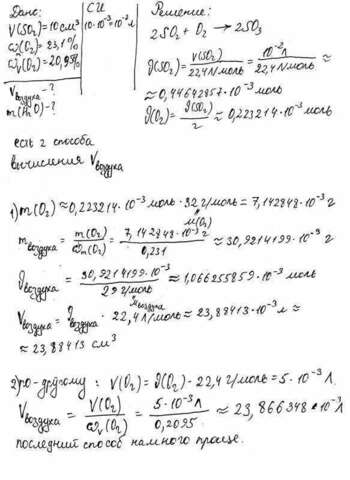 Дано:
V(SO₂)=10 см³
ω(O₂)=23,1%
ωᵥ(O₂)=20,95%
Vвоздуха-?
СИ
10·10⁻³=10⁻²л
Решение:
2SO₂ + O₂ → 2SO₃
ν(SO₂)= V(SO₂)/22,4 л/моль = 10⁻²л/22,4 л/моль ≈
≈0,44642857·10⁻³ моль
ν(O₂)= ν(SO₂)/2 ≈0,223214·10⁻³ моль
есть 2 способа
вычисления Vвоздуха
1) m(O₂)≈0,223214·10⁻³ моль·32 г/моль = 7,142848·10⁻³ г
M(O₂)
mвоздуха = m(O₂)/ω(O₂) = 7,142848·10⁻³ г/0,231 ≈ 30,9214199·10⁻³ г
νвоздуха = 30,9214199·10⁻³/29 г/моль ≈ 1,066255859·10⁻³ моль
Mвоздуха
Vвоздуха = νвоздуха · 22,4 л/моль ≈ 23,88413·10⁻³ л ≈
≈ 23,88413 см³
2) по-другому: V(O₂)=ν(O₂)·22,4 г/моль = 5·10⁻³ л.
Vвоздуха = V(O₂)/ωᵥ(O₂) = 5·10⁻³ л/0,2095 ≈ 23,866348·10⁻³ л
последний способ намного проще.